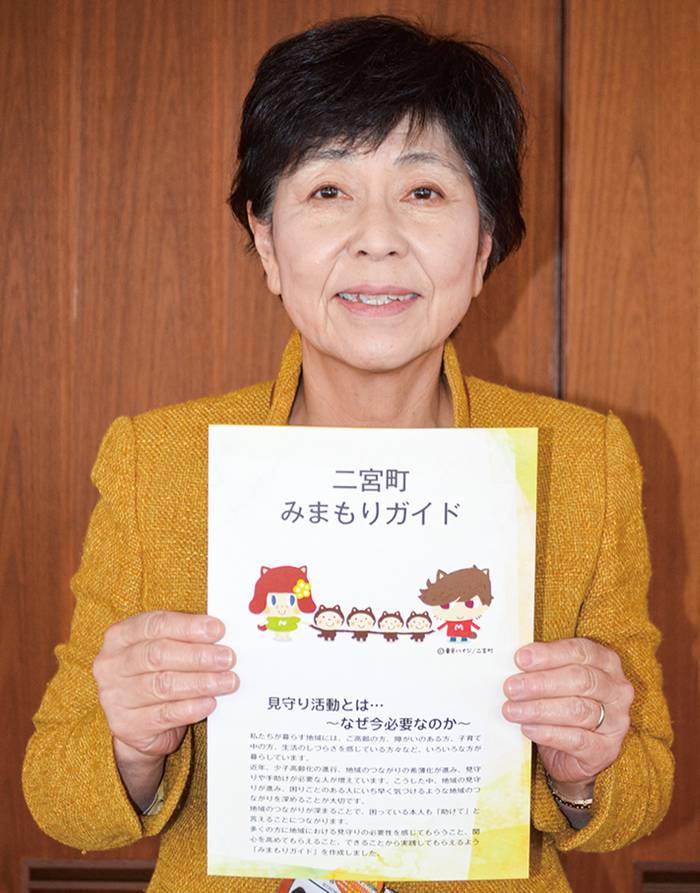 二宮町
みまもりガイド
©東京ハイジ/二宮町
見守り活動とは…
～なぜ今必要なのか～
私たちが暮らす地域には、ご高齢の方、障がいのある方、子育て
中の方、生活のしづらさを感じている方々など、いろいろな方が
暮らしています。
近年、少子高齢化の進行、地域のつながりの希薄化が進み、見守
りや手助けが必要な人が増えています。こうした中、地域の見守
りが進み、困りごとのある人にいち早く気づけるような地域のつ
ながりを深めることが大切です。
地域のつながりが深まることで、困っている本人も「助けて」と
言えることにつながります。
多くの方に地域における見守りの必要性を感じてもらうこと、関
心を高めてもらえること、できることから実践してもらえるよう
「みまもりガイド」を作成しました。